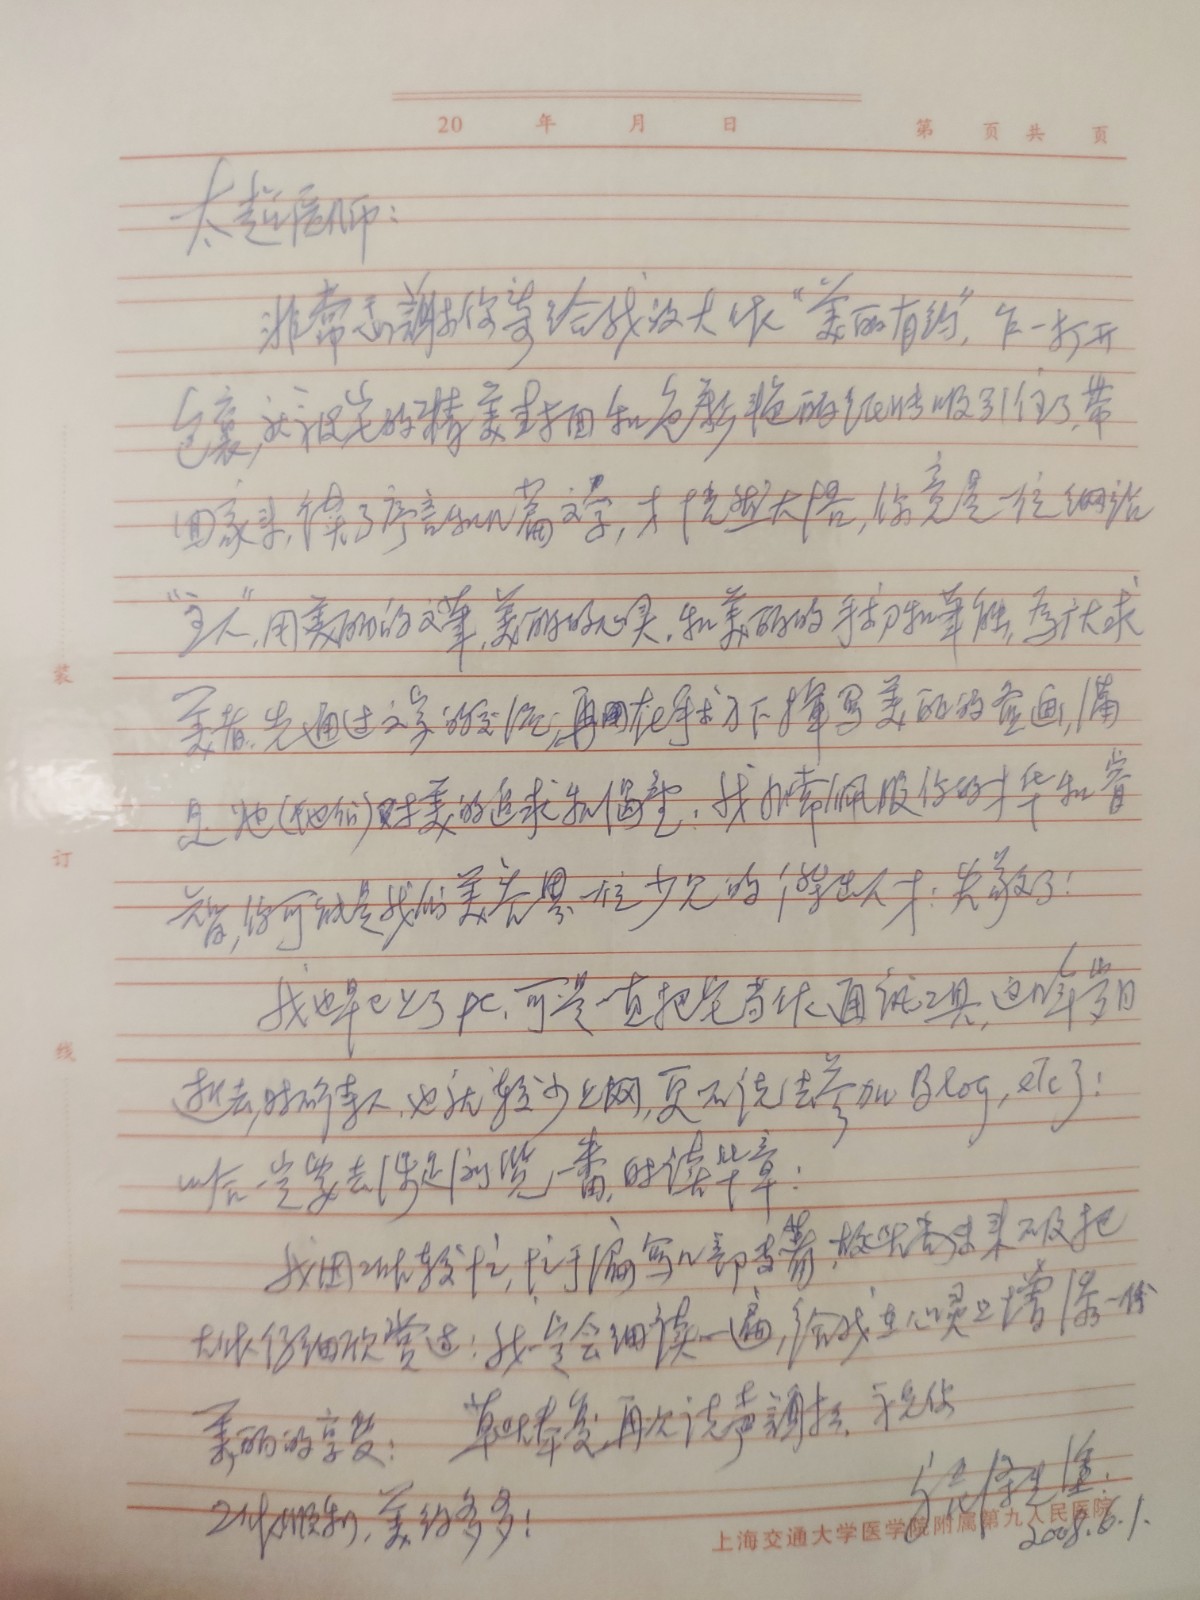 20 年 月 日 第 页 共 页
太超医师：
非常感謝你寄给我的大作“美丽有约”，乍一打开
包裹，就被它的精美封面和色彩艳丽的吸引住了，带
回家来，读了序言和几篇文字，才恍然大悟，你竟是一位网站
“主人”，用美丽的文笔，美丽的心灵，和美丽的手术刀和笔触，为广大求
美者，先通过文字的交流，再用在手术刀下挥写美丽的画，满
足她（他们）对美的追求和愿望；我非常佩服你的才华和睿
智，你可能是我们美容界一位少见的杰出人才；失敬了！
我也早已上了pc，可是一直把它当作通讯工具，近年岁月
逝去，时不待人，也就较少上网，更不说去参加Blog，etc了！
以后一定要去你处浏览一番，时读华章；
我因工作较忙，忙于编写几部专著，故此尚未来不及把
大作仔细欣赏过；我一定会细读一遍，给我在心灵上增添一份
美丽的享受； 草此奉复，再次说声謝擾，祝你
工作顺利，美约多多！
装
订
线
上海交通大学医学院附属第九人民医院
2008.6.1.